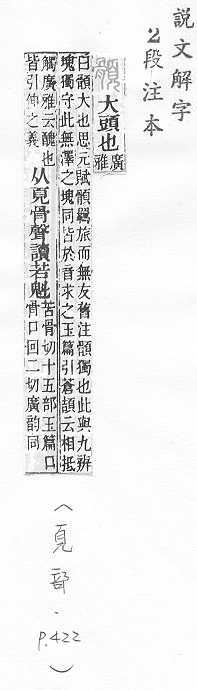 説文解字
2段注本
顝
大頭也
廣
雅
曰顝大也思元賦顝羇旅而無友舊注顝獨也此與九辨
塊獨守此無澤之塊同皆於音求之玉篇引蒼頡云相抵
觸廣雅云醜也
皆引伸之義
从頁骨聲讀若魁
苦骨切十五部玉篇口
骨口回二切廣韵同
(頁部.p.422)